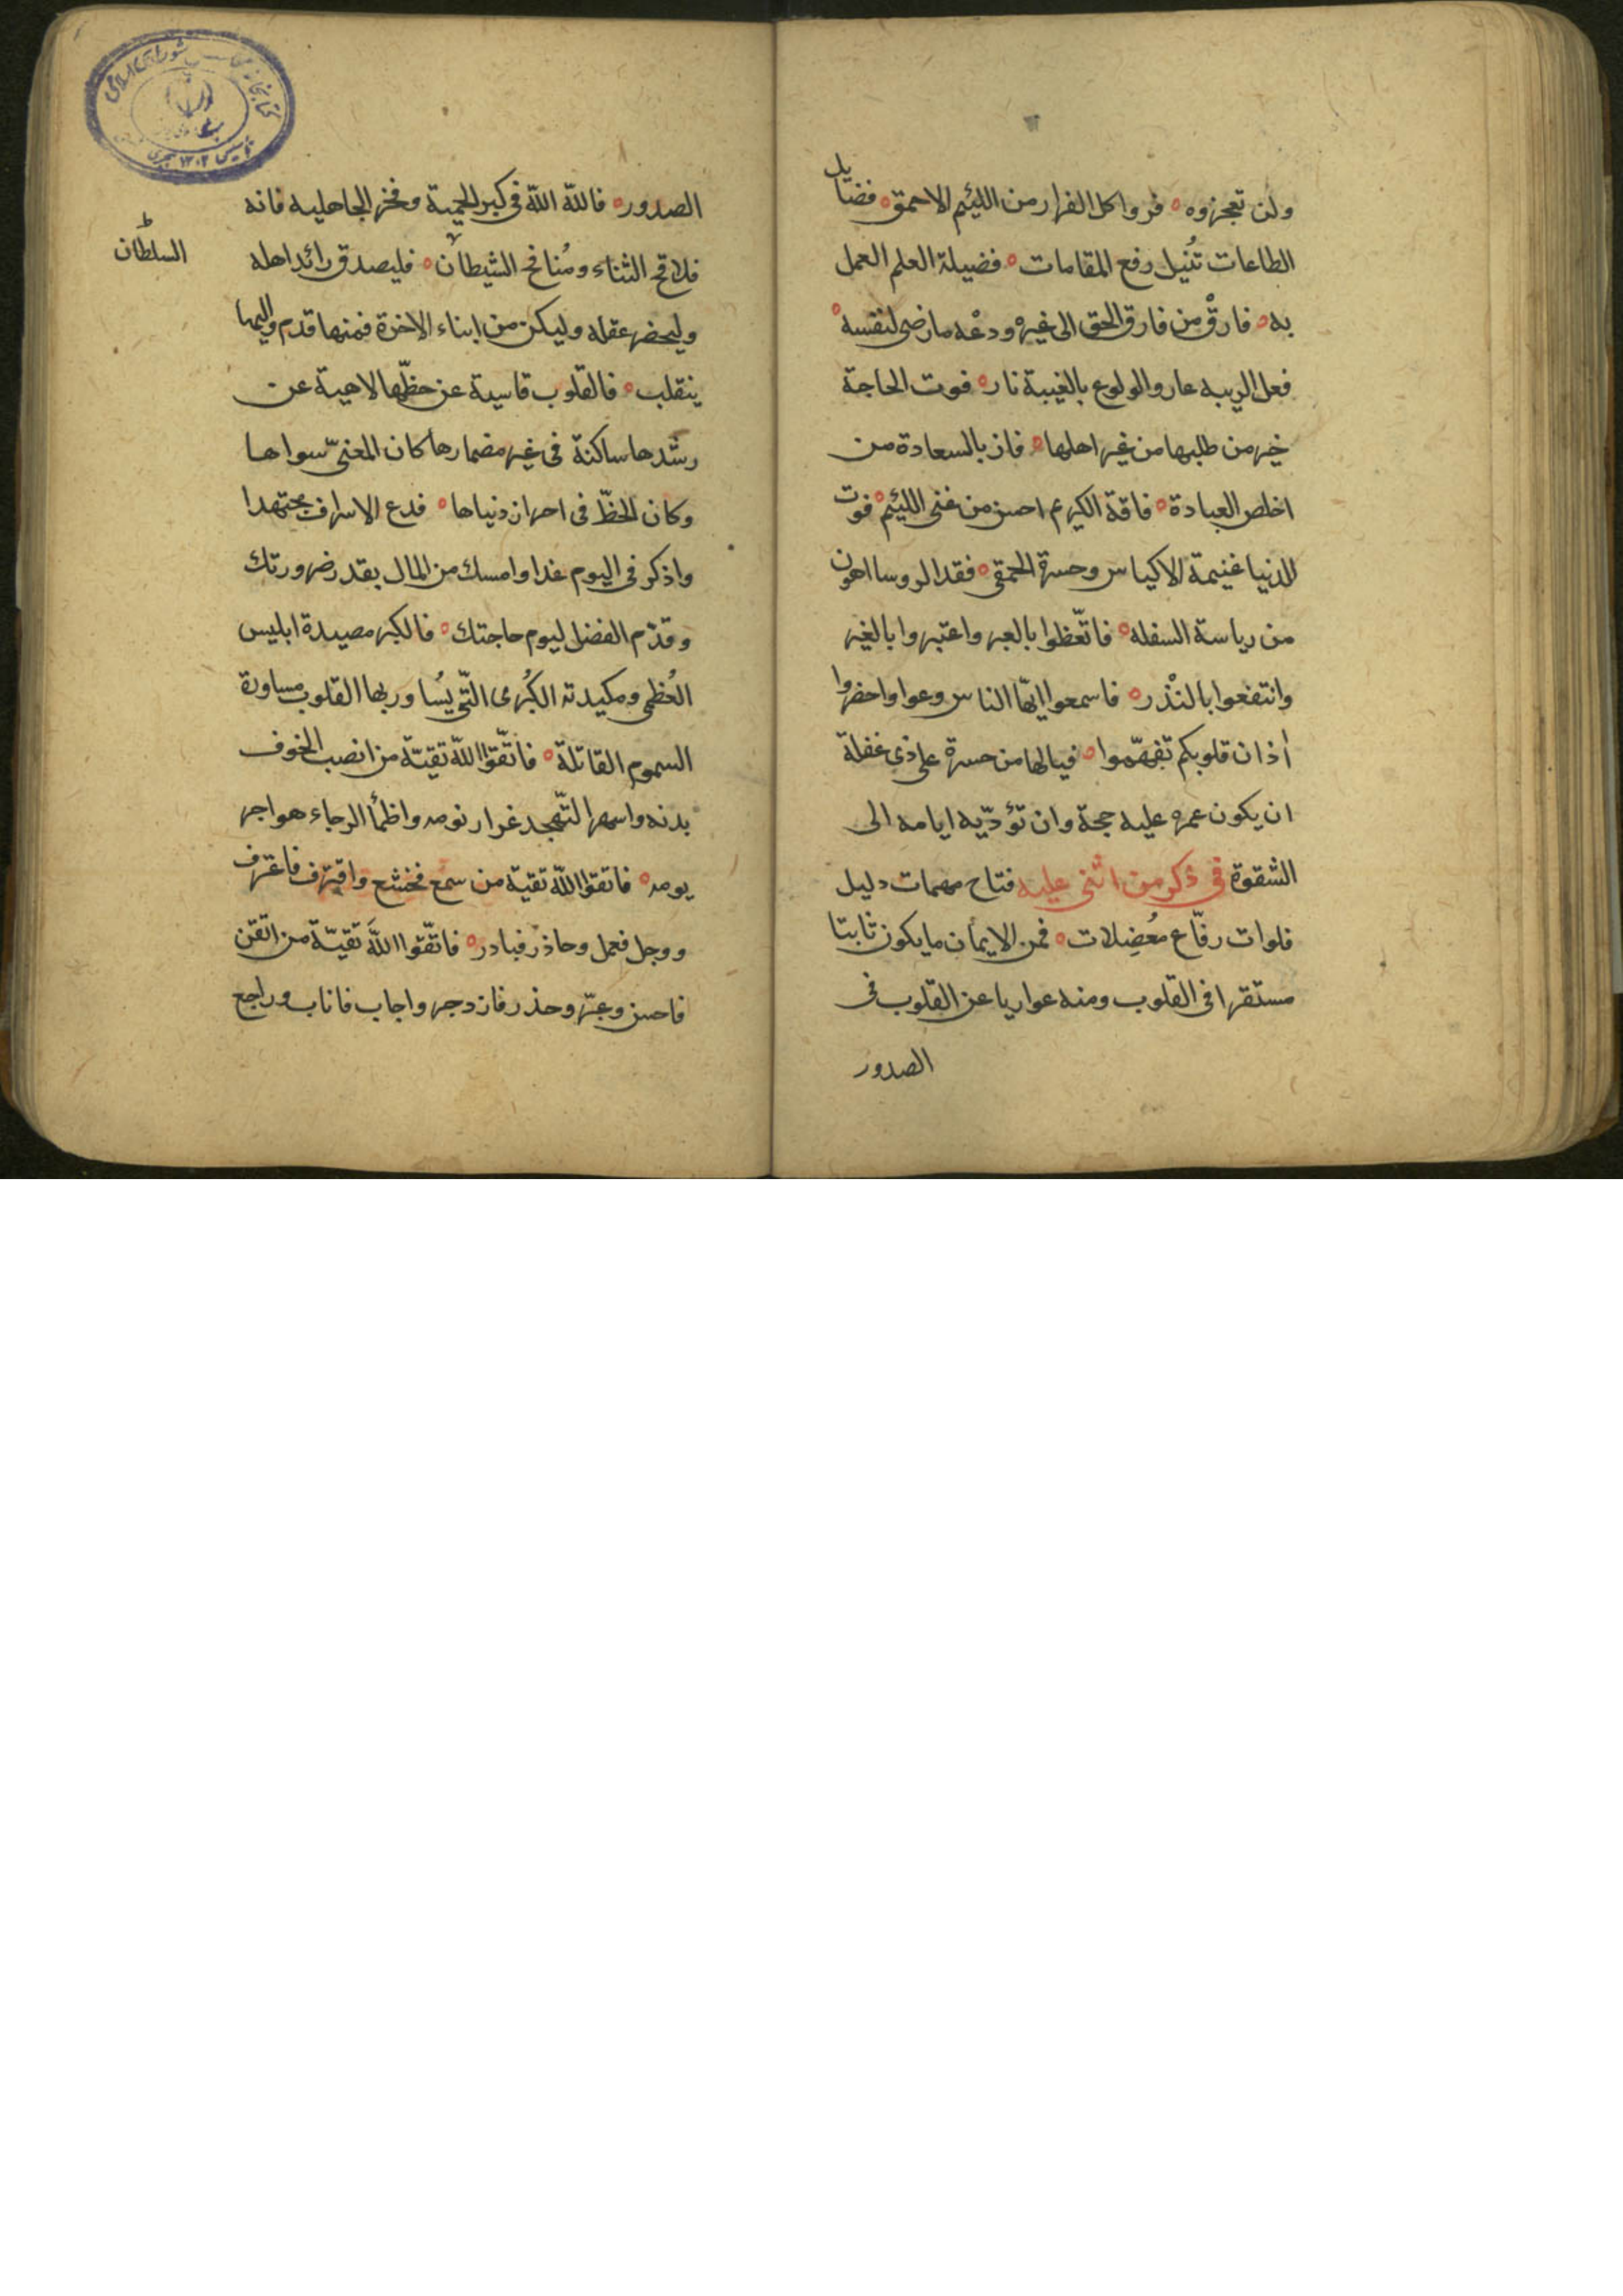 ولن تعجزوه ه فروا كل الفرار من اللئيم الاحمق ه فضايل
الطاعات تُنيل رفع المقامات ه فضيلة العلم العمل
به ه فارقْ من فارق الحق الى غيره ودعْه مارضى لنفسه ه
فعل الريبه عار والولوع بالغيبة نار ه فوت الحاجة
خير من طلبها من غير اهلها ه فاز بالسعادة من
اخلص العبادة ه فاقة الكريم احسن من غنى اللئيم ه فوت
الدنيا غنيمة الاكياس وحسرة الحمقى ه فقد الروسا اهون
من رياسة السفله ه فاتّعظوا بالعبر واعتبروا بالغير
وانتفعوا بالنُذر ه فاسمعوا ايّها الناس وعوا واحضروا
أذان قلوبكم تفهّموا ه فيالها من حسرة على ذى غفلة
ان يكون عمره عليه حجة وان تؤدّيه ايامه الى
الشقوة فى ذكر من اثنى عليه فتاح مهمات دليل
فلوات رفّاع مُعضِلات ه فمن الايمان ما يكون ثابتا
مستقرا فى القلوب ومنه عواريا عن القلوب فى
الصدور
الصدور ه فالله الله فى كبر الحمية وفخر الجاهليه فانه
فلاقح الثناء ومُنافخ الشيطان ه فليصدق رائد اهله
السلطان
وليحضر عقله وليكن من ابناء الاخرة فمنها قدم واليها
ينقلب ه فالقلوب قاسية عن حظّها لاهية عن
رشدها ساكنة فى غير مضمارها كان المعنىّ سواها
وكان الحظّ فى احراز دنياها ه فدع الاسراف مجتهدا
واذكر فى اليوم غدا وامسك من المال بقدر ضرورتك
وقدّم الفضل ليوم حاجتك ه فالكبر مصيدة ابليس
العُظمى ومكيدته الكُبرى الّتى يُساور بها القلوب مساورة
السموم القاتلة ه فاتّقوا الله تقيّة من انصب الخوف
بدنه واسهر التّهجد غرار نومه واظمأ الرجاء هواجر
يومه ه فاتقوا الله تقية من سمع فخشع واقترف فاعترف
ووجل فعمل وحاذر فبادر ه فاتّقوا الله تقيّة من اتقن
فاحسن وعبّر وحذر فازدجر واجاب فاناب وراجع